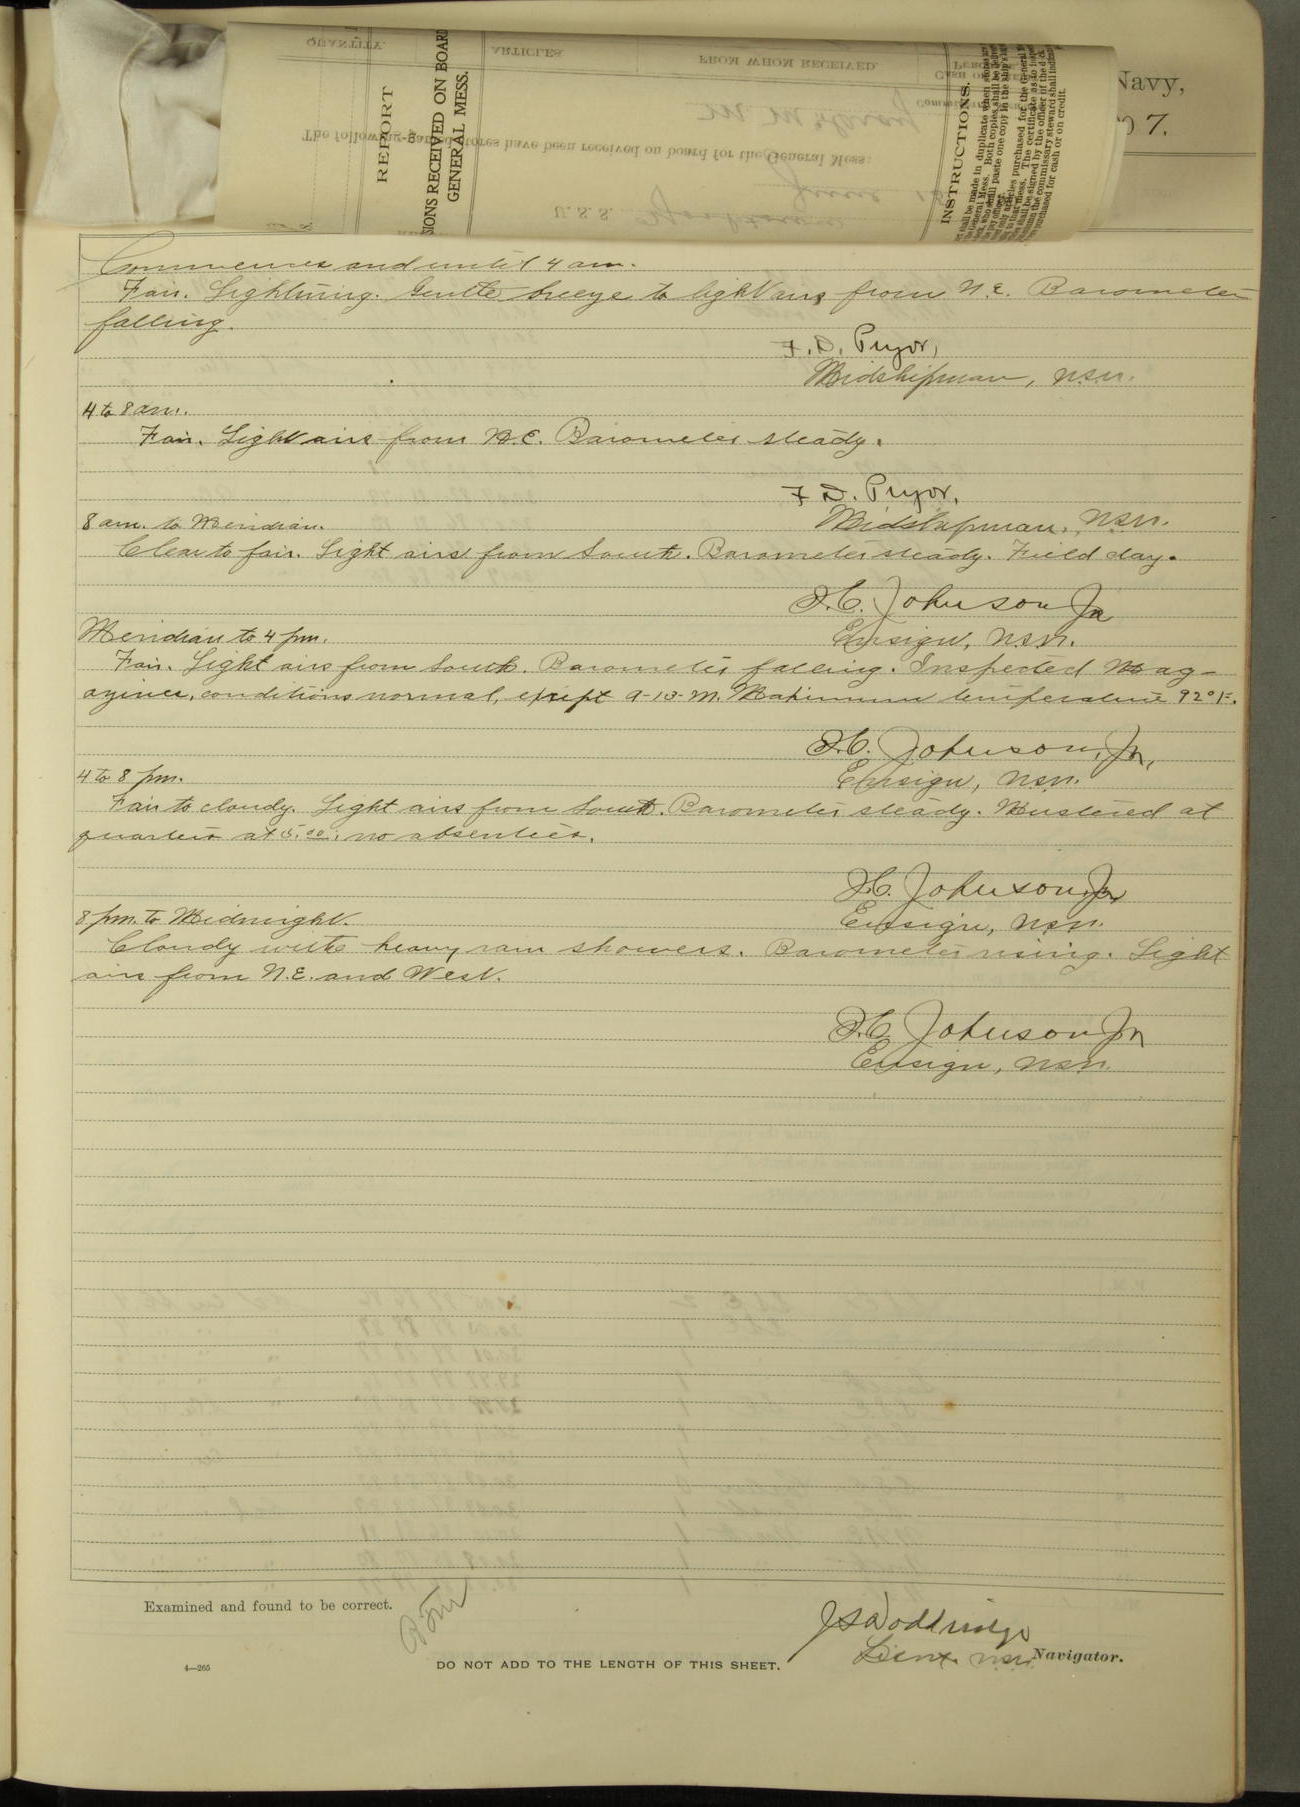 QUANTITY.
ARTICLES
FROM WHOM RECEIVED
REPORT
SIONS RECEIVED ON BOARD
GENERAL MESS.
The following-named stores have been received on board for the General Mess:
U. S. S. Yorktown
June
INSTRUCTIONS.
Navy,
7.
Commences and until 4 am.
Fair. Lightning. Gentle breeze to light airs from N.E. Barometer
falling.
F. D. Pryor,
Midshipman, USN.
4 to 8 am.
Fair. Light airs from N.E. Barometer steady.
F. D. Pryor,
Midshipman, USN.
8 am. to Meridian.
Clear to fair. Light airs from South. Barometer steady. Field day.
I.C. Johnson Jr
Ensign, USN.
Meridian to 4 pm.
Fair. Light airs from South. Barometer falling. Inspected Mag-
azines, conditions normal, except A-13-M. Maximum temperature 92°F.
I.C. Johnson, Jr,
Ensign, USN.
4 to 8 pm.
Fair to cloudy. Light airs from South. Barometer steady. Mustered at
quarters at 5.00, no absentees.
I.C. Johnson, Jr
Ensign, USN.
8 pm. to Midnight.
Cloudy with heavy rain showers. Barometer rising. Light
airs from N.E. and West.
I.C. Johnson Jr
Ensign, USN.
Examined and found to be correct.
J S Woddridge
Lieut. USN. Navigator.
4—265
DO NOT ADD TO THE LENGTH OF THIS SHEET.